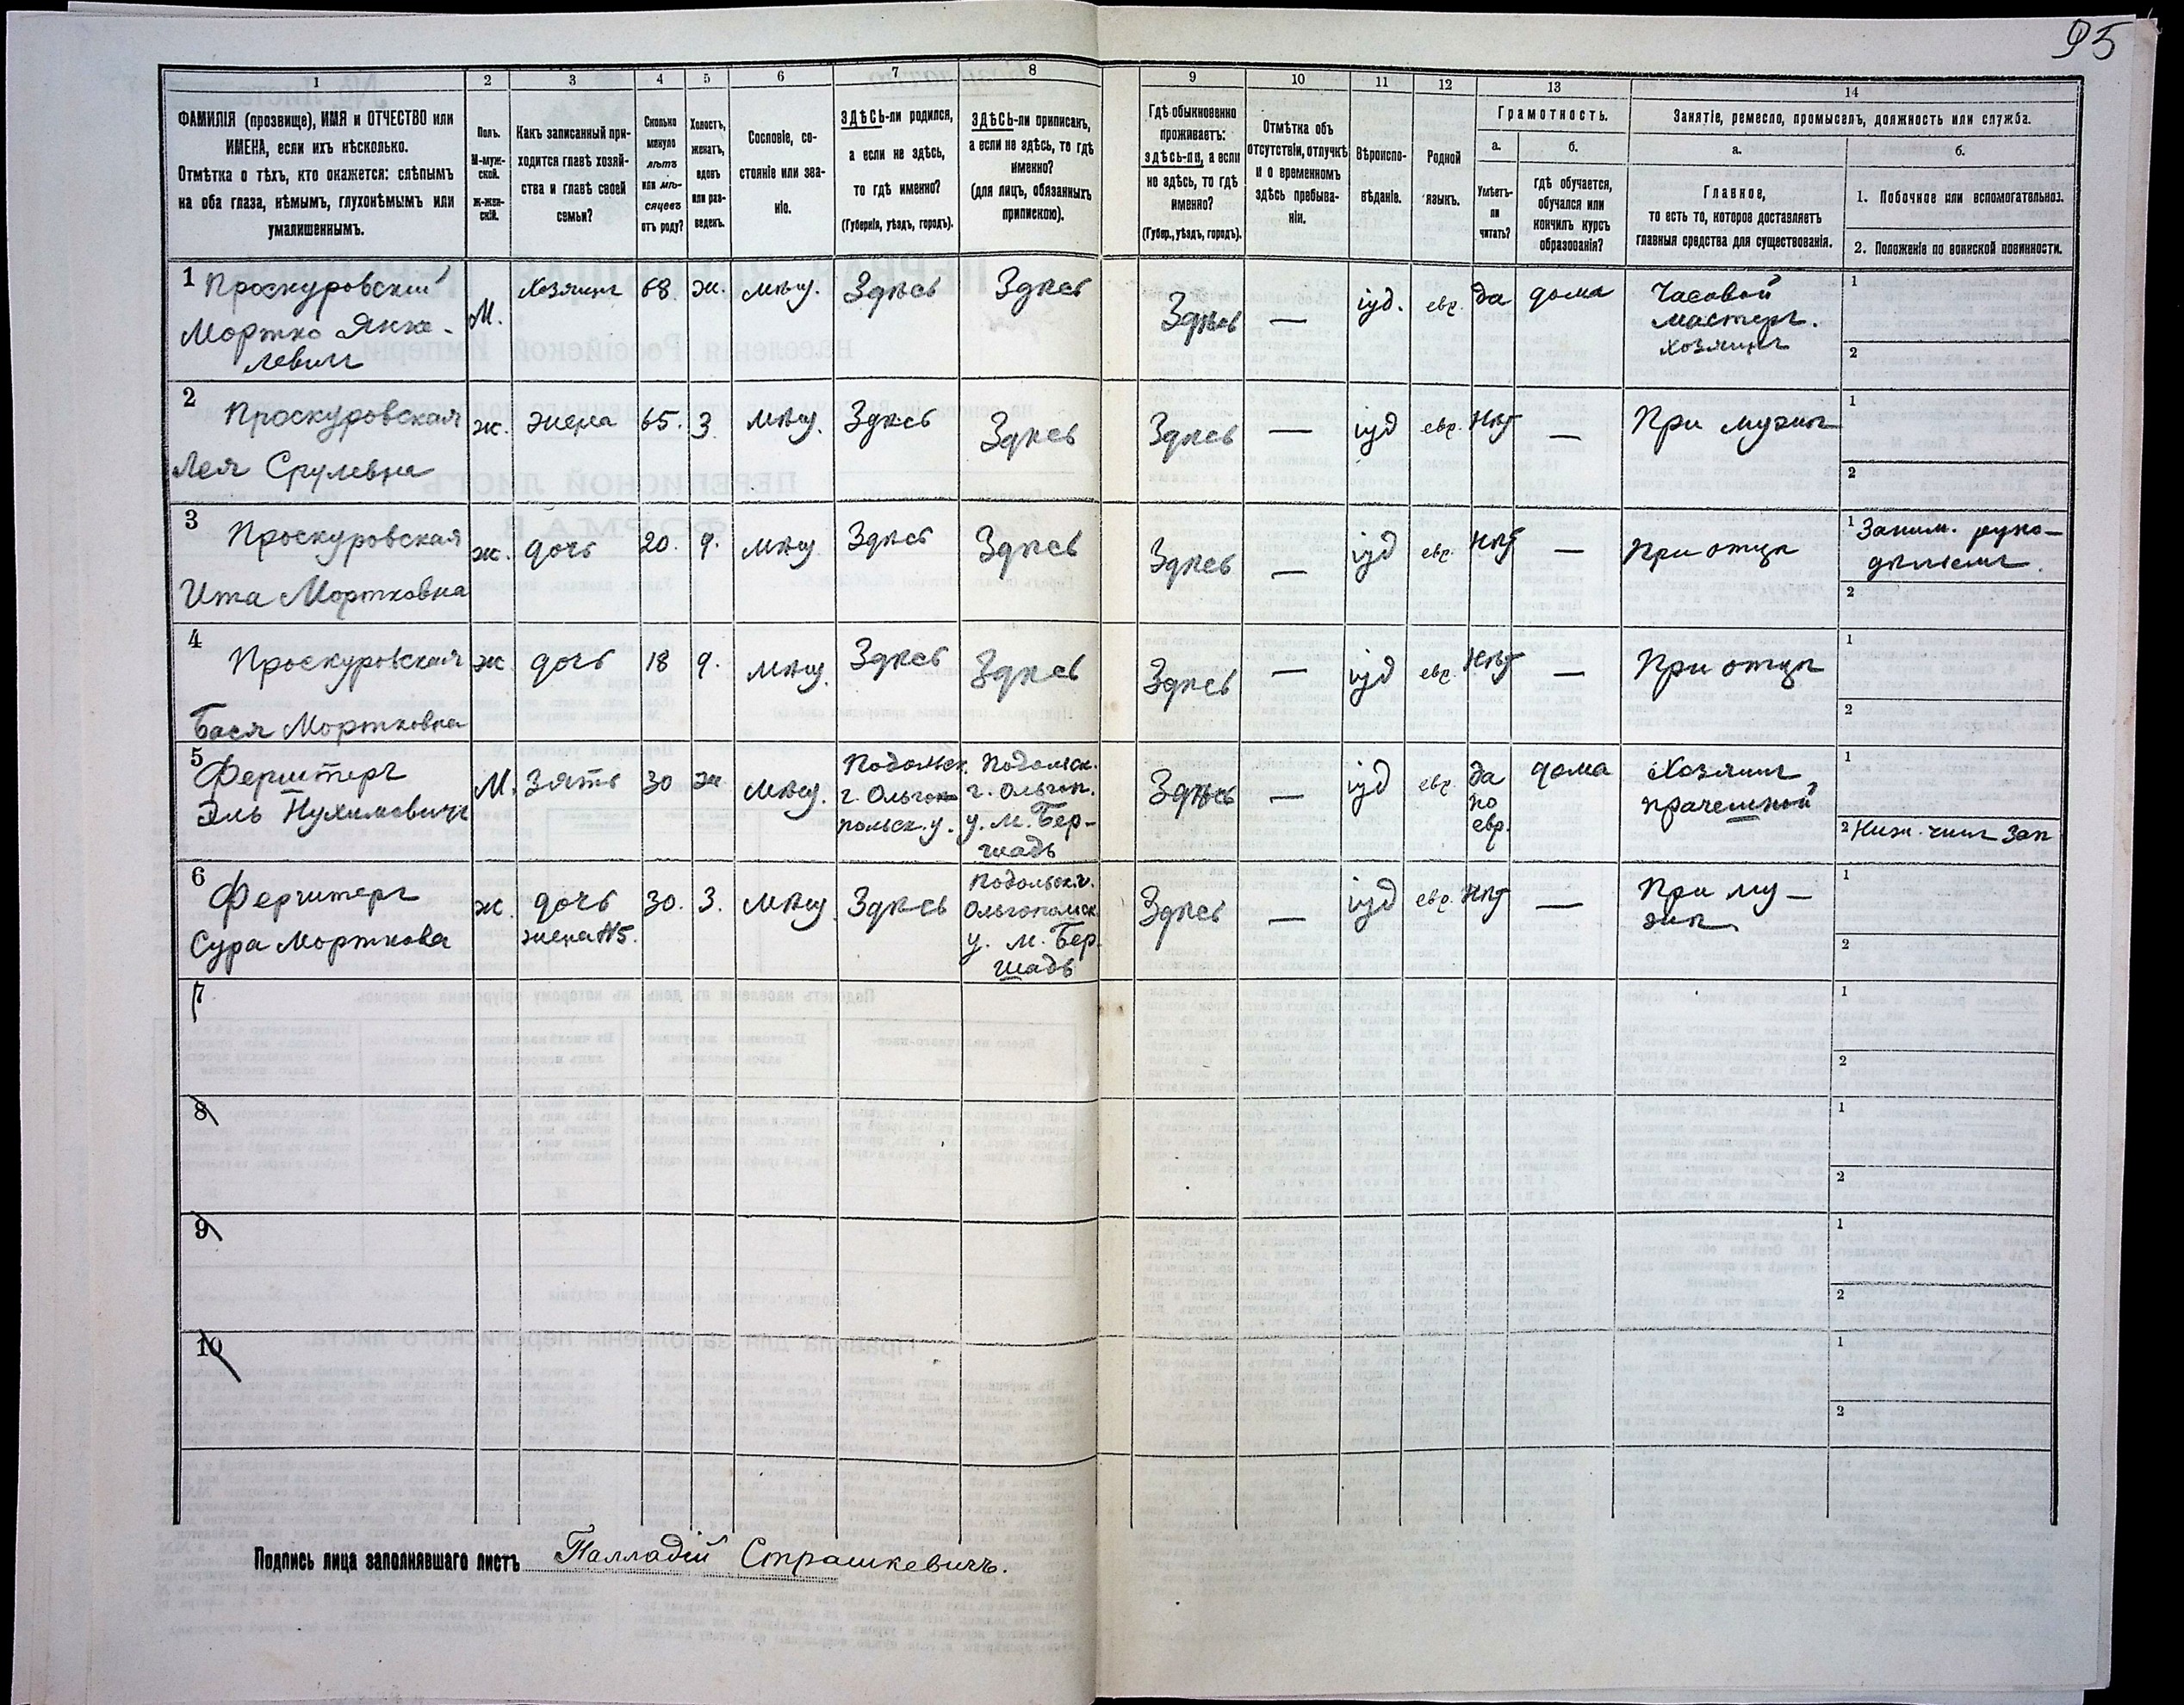 95
1 2 3 4 5 6 7 8 9 10 11 12 13 14
ФАМИЛІЯ (прозвище), ИМЯ и ОТЧЕСТВО или
ИМЕНА, если ихъ нѣсколько.
Отмѣтка о тѣхъ, кто окажется: слѣпымъ
на оба глаза, нѣмымъ, глухонѣмымъ или
умалишеннымъ.
Полъ.
М-муж-
ской.
ж-жен-
скій.
Какъ записанный при-
ходится главѣ хозяй-
ства и главѣ своей
семьи?
Сколько
минуло
лѣтъ
или мѣ-
сяцевъ
отъ роду?
Холостъ,
женатъ,
вдовъ
или раз-
веденъ.
Сословіе, со-
стояніе или зва-
ніе.
ЗДѢСЬ-ли родился,
а если не здѣсь,
то гдѣ именно?
(Губернія, уѣздъ, городъ).
ЗДѢСЬ-ли приписанъ,
а если не здѣсь, то гдѣ
именно?
(для лицъ, обязанныхъ
припискою).
Гдѣ обыкновенно
проживаетъ:
здѣсь-ли, а если
не здѣсь, то гдѣ
именно?
(Губер., уѣздъ, городъ).
Отмѣтка объ
отсутствіи, отлучкѣ
и о временномъ
здѣсь пребыва-
ніи.
Вѣроиспо-
вѣданіе.
Родной
языкъ.
Грамотность.
а.
Умѣетъ-
ли
читать?
б.
гдѣ обучается,
обучался или
кончилъ курсъ
образованія?
Занятіе, ремесло, промыселъ, должность или служба.
а.
Главное,
то есть то, которое доставляетъ
главныя средства для существованія.
б.
1. Побочное или вспомогательное.
2. Положеніе по воинской повинности.
1 Проскуровскій
Мортко Янке-
левичъ
М.
Хозяинъ
68.
ж.
мѣщ.
Здѣсь
Здѣсь
Здѣсь
—
іуд.
евр.
да
дома
Часовой
мастеръ.
хозяинъ
1
2
2 Проскуровская
Лея Срулевна
ж.
жена
65.
З.
мѣщ.
Здѣсь
Здѣсь
Здѣсь
—
іуд
евр.
нѣт
—
При мужѣ
1
2
3 Проскуровская
Ита Мортковна
ж.
дочь
20.
д.
мѣщ
Здѣсь
Здѣсь
Здѣсь
—
іуд
евр.
нѣт
—
При отцѣ
1 Заним. руко-
дѣліемъ.
2
4 Проскуровская
Бася Мортковна
ж
дочь
18
д.
мѣщ.
Здѣсь
Здѣсь
Здѣсь
—
іуд
евр.
нѣт
—
При отцѣ
1
2
5 Ферштеръ
Эль Нухимовичъ
М.
Зять
30
ж
мѣщ.
Подольск.
г. Ольго
польск. у.
Подольск.
г. Ольгоп.
у. м. Бер-
шадь
Здѣсь
—
іуд
евр.
да
по
евр.
дома
Хозяинъ
прачешной
1
2 Нижн. чинъ зап
6 Ферштеръ
Сура Морткова
ж.
дочь
жена №5.
30.
З.
мѣщ
Здѣсь
Подольск. г.
Ольгопольск.
у. м. Бер-
шадь
Здѣсь
—
іуд
евр.
нѣт
—
При му-
жѣ
1
2
7
1
2
8
1
2
9
1
2
10
1
2
Подпись лица заполнявшаго листъ Палладій Страшкевичъ.